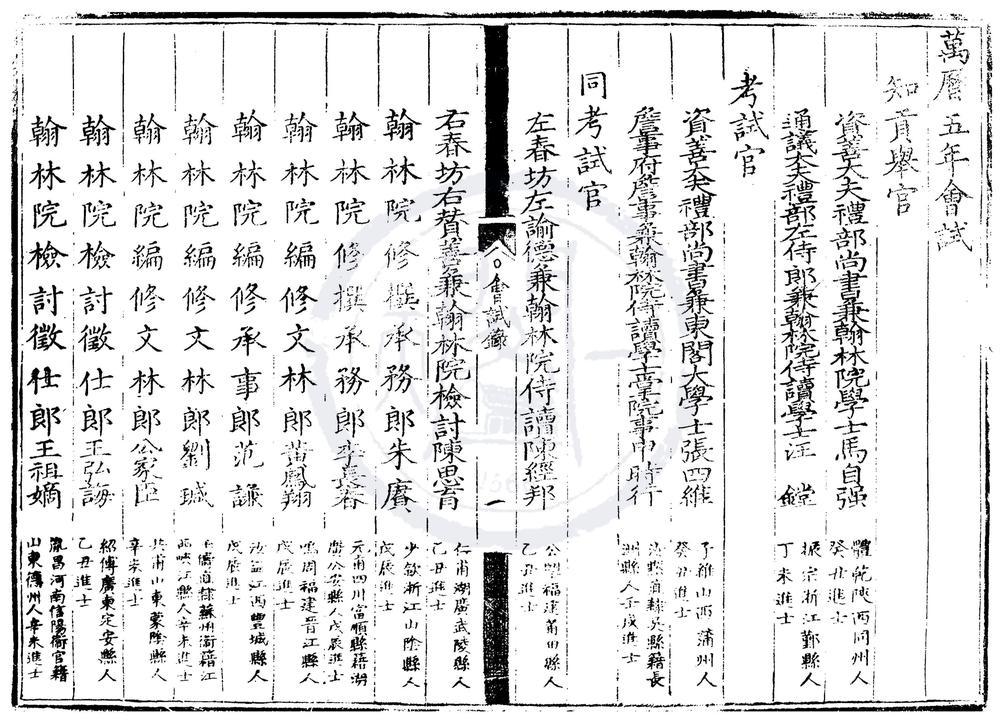 萬曆五年會試
知貢舉官
資善大夫禮部尚書兼翰林院學士馬自强 體乾陝西同州人癸丑進士
通議大夫禮部左侍郎兼翰林院侍讀學士汪鏜 振宗浙江鄞縣人丁未進士
考試官
資善大夫禮部尚書兼東閣大學士張四維 子維山西蒲州人癸丑進士
詹事府詹事兼翰林院侍讀學士掌院事申時行 直隸吳縣籍長洲縣人壬戌進士
同考試官
左春坊左諭德兼翰林院侍讀陳經邦 公望福建莆田縣人乙丑進士
○會試錄
一
右春坊右贊善兼翰林院檢討陳思育 仁甫湖廣武陵縣人乙丑進士
翰林院修撰承務郎朱賡 少欽浙江山陰縣人戊辰進士
翰林院修撰承務郎李長春 元甫四川富順縣籍湖廣公安縣人戊辰進士
翰林院編修文林郎黃鳳翔 鳴周福建晉江縣人戊辰進士
翰林院編修承事郎范謙 汝益江西豐城縣人戊辰進士
翰林院編修文林郎劉瑊 玉儔直隸蘇州衞籍江西峽江縣人辛未進士
翰林院編修文林郎公家臣 共甫山東蒙陰縣人辛未進士
翰林院檢討徵仕郎王弘誨 紹傳廣東定安縣人乙丑進士
翰林院檢討徵仕郎王祖嫡 胤昌河南信陽衞官籍山東德州人辛未進士